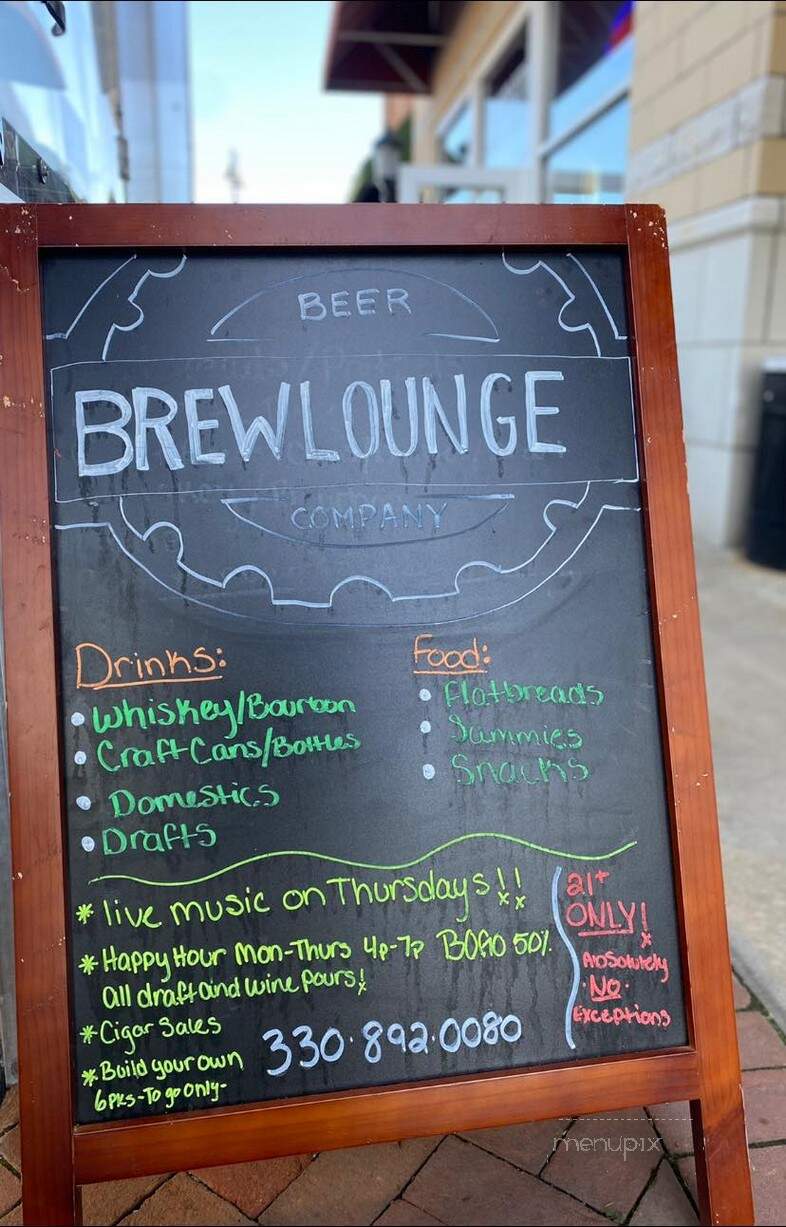 BEER
BREWLOUNGE
COMPANY
Drinks:
Whiskey/Bourbon
Craft Cans/Bottles
Domestics
Drafts
Food:
Flatbreads
Sammies
Snacks
* live music on Thursdays!!
* Happy Hour Mon-Thurs 4p-7p BOGO 50%
all draft and wine pours!
* Cigar Sales
* Build your own
6pks-To go only-
330.892.0080
21+
ONLY!
Absolutely
·No·
Exceptions
menupix